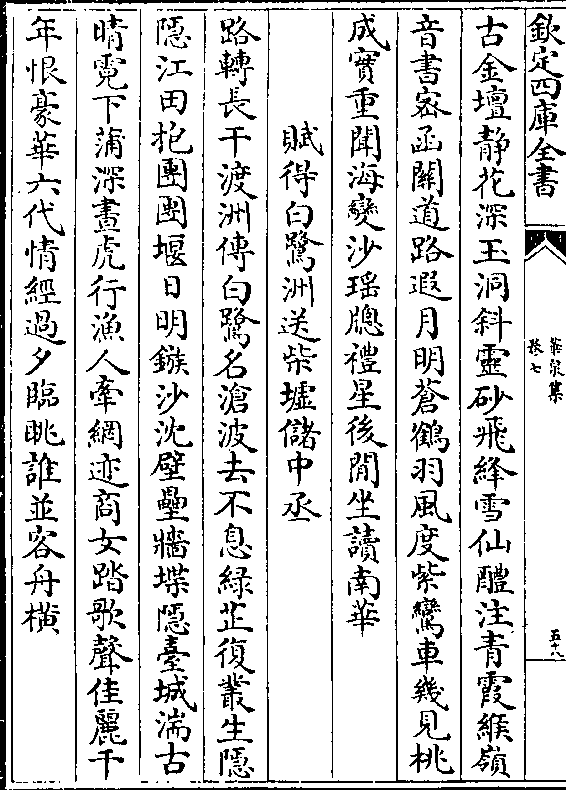 欽定四庫全書
華泉集
卷七
五十八
古金壇静花深玉洞斜靈砂飛絳雪仙醴注青霞緱嶺
音書密函關道路遐月明蒼鶴羽風度紫鸞車幾見桃
成實重聞海變沙瑶牕禮星後閒坐讀南華
賦得白鷺洲送柴墟儲中丞
路轉長干渡洲傳白鷺名滄波去不息綠芷復叢生隠
隠江田枹團團堰日明鏃沙沈壁壘牆堞隠臺城湍古
晴霓下蒲深晝虎行漁人牽網迹商女踏歌聲佳麗千
年恨豪華六代情經過夕臨眺誰並客舟横